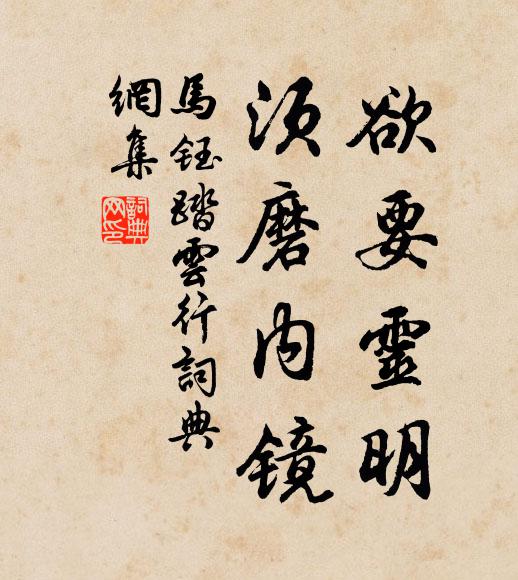 欲要靈明
須磨內鏡
馬鈺踏雲行詞典
網集
詞典
网印